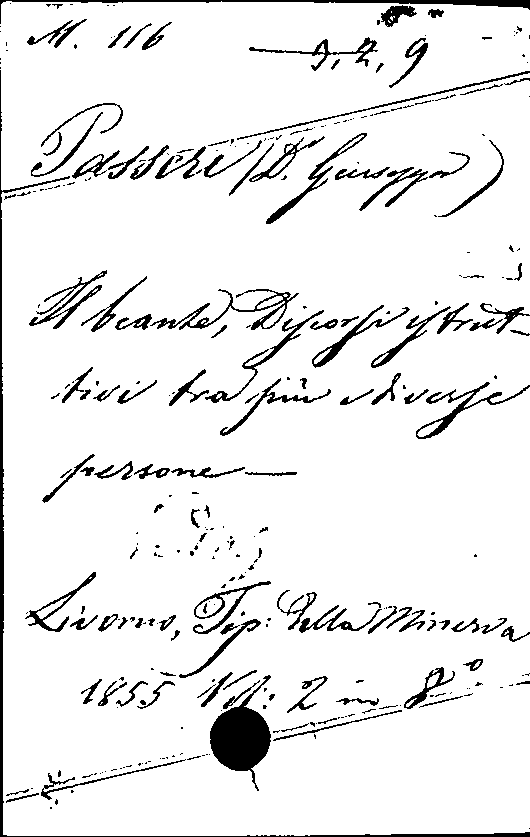 M. 116
3, 2, 9
Passeri (Dr. Giuseppe)
Il beante, Discorsi istrut-
tivi tra più e diverse
persone —
Livorno, Tip: della Minerva
1855 Vol: 2 in 8º